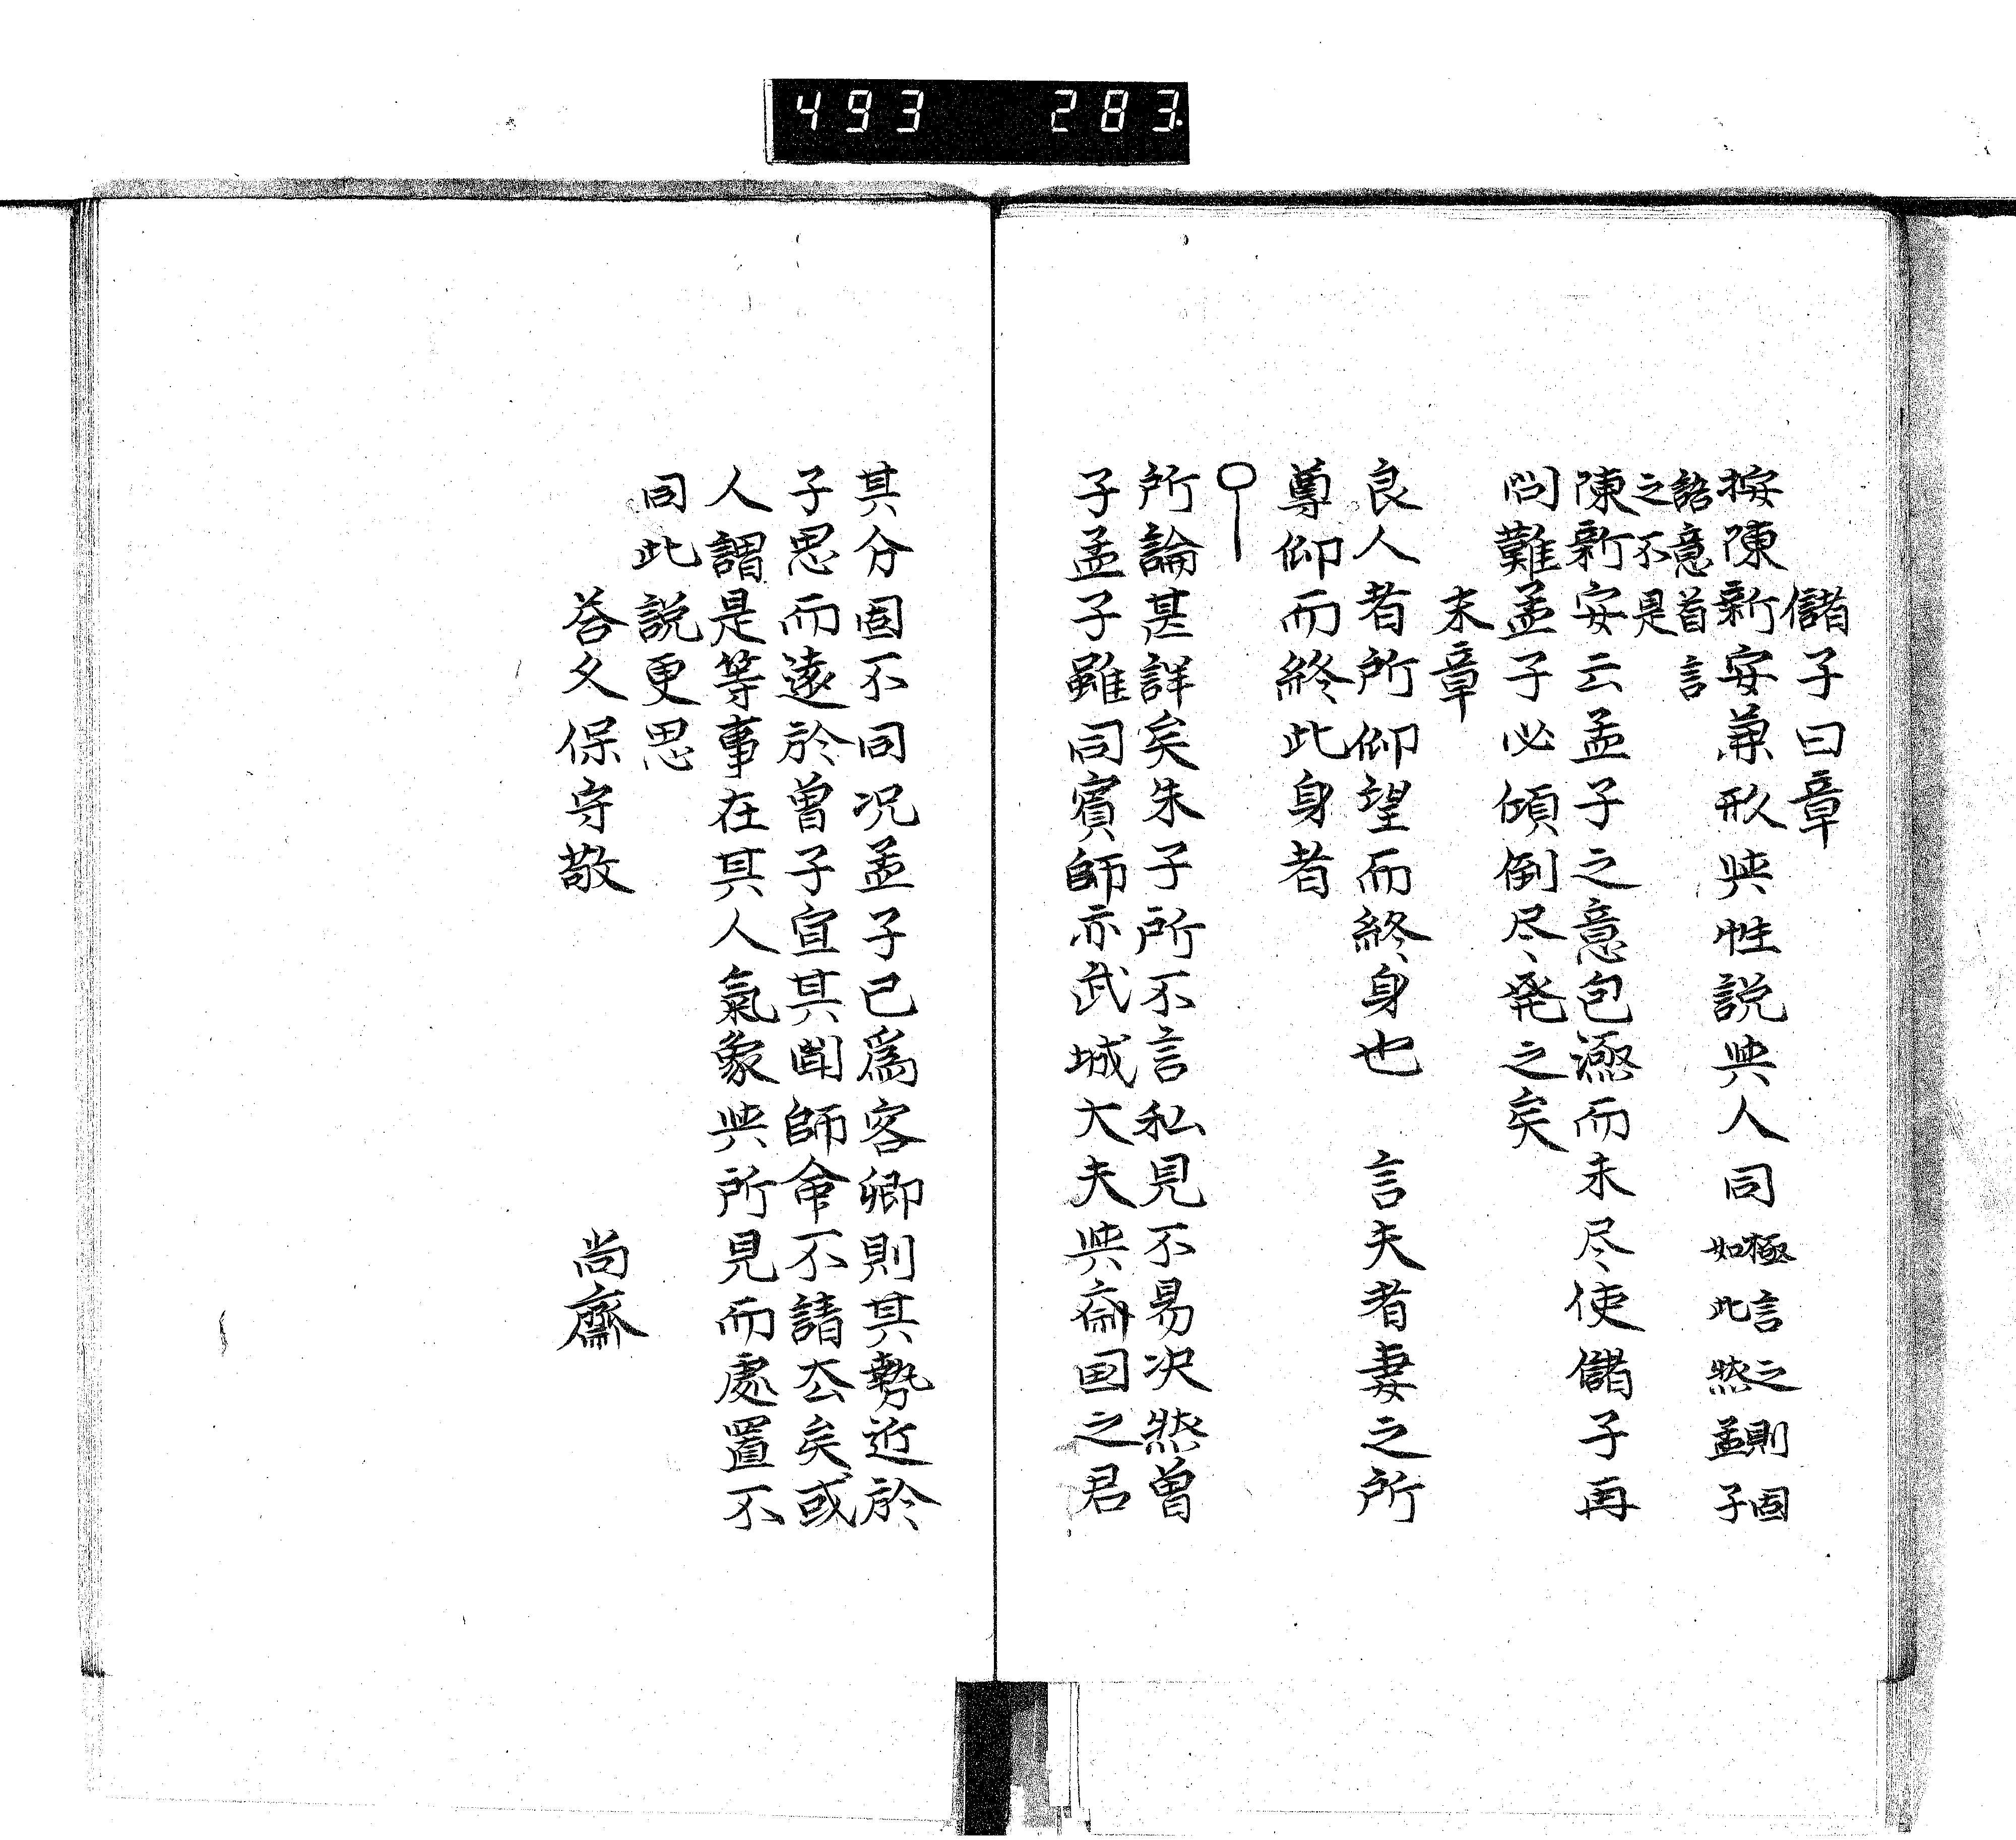 493 283.
儲子曰章
按陳新安兼形與性説與人同極言之則固如此然孟子
語意首言
之不是
陳新安云孟子之意包涵而未尽使儲子再
問難孟子必傾倒尽発之矣
末章
良人者所仰望而終身也 言夫者妻之所
尊仰而終此身者
所論甚詳矣朱子所不言私見不易决然曽
子孟子雖同賓師亦武城大夫與齊国之君
其分固不同况孟子已爲客卿則其勢近於
子思而遠於曽子宜其聞師命不請去矣或
人謂是等事在其人氣象與所見而處置不
同此説更思
答久保守敬
尚齋